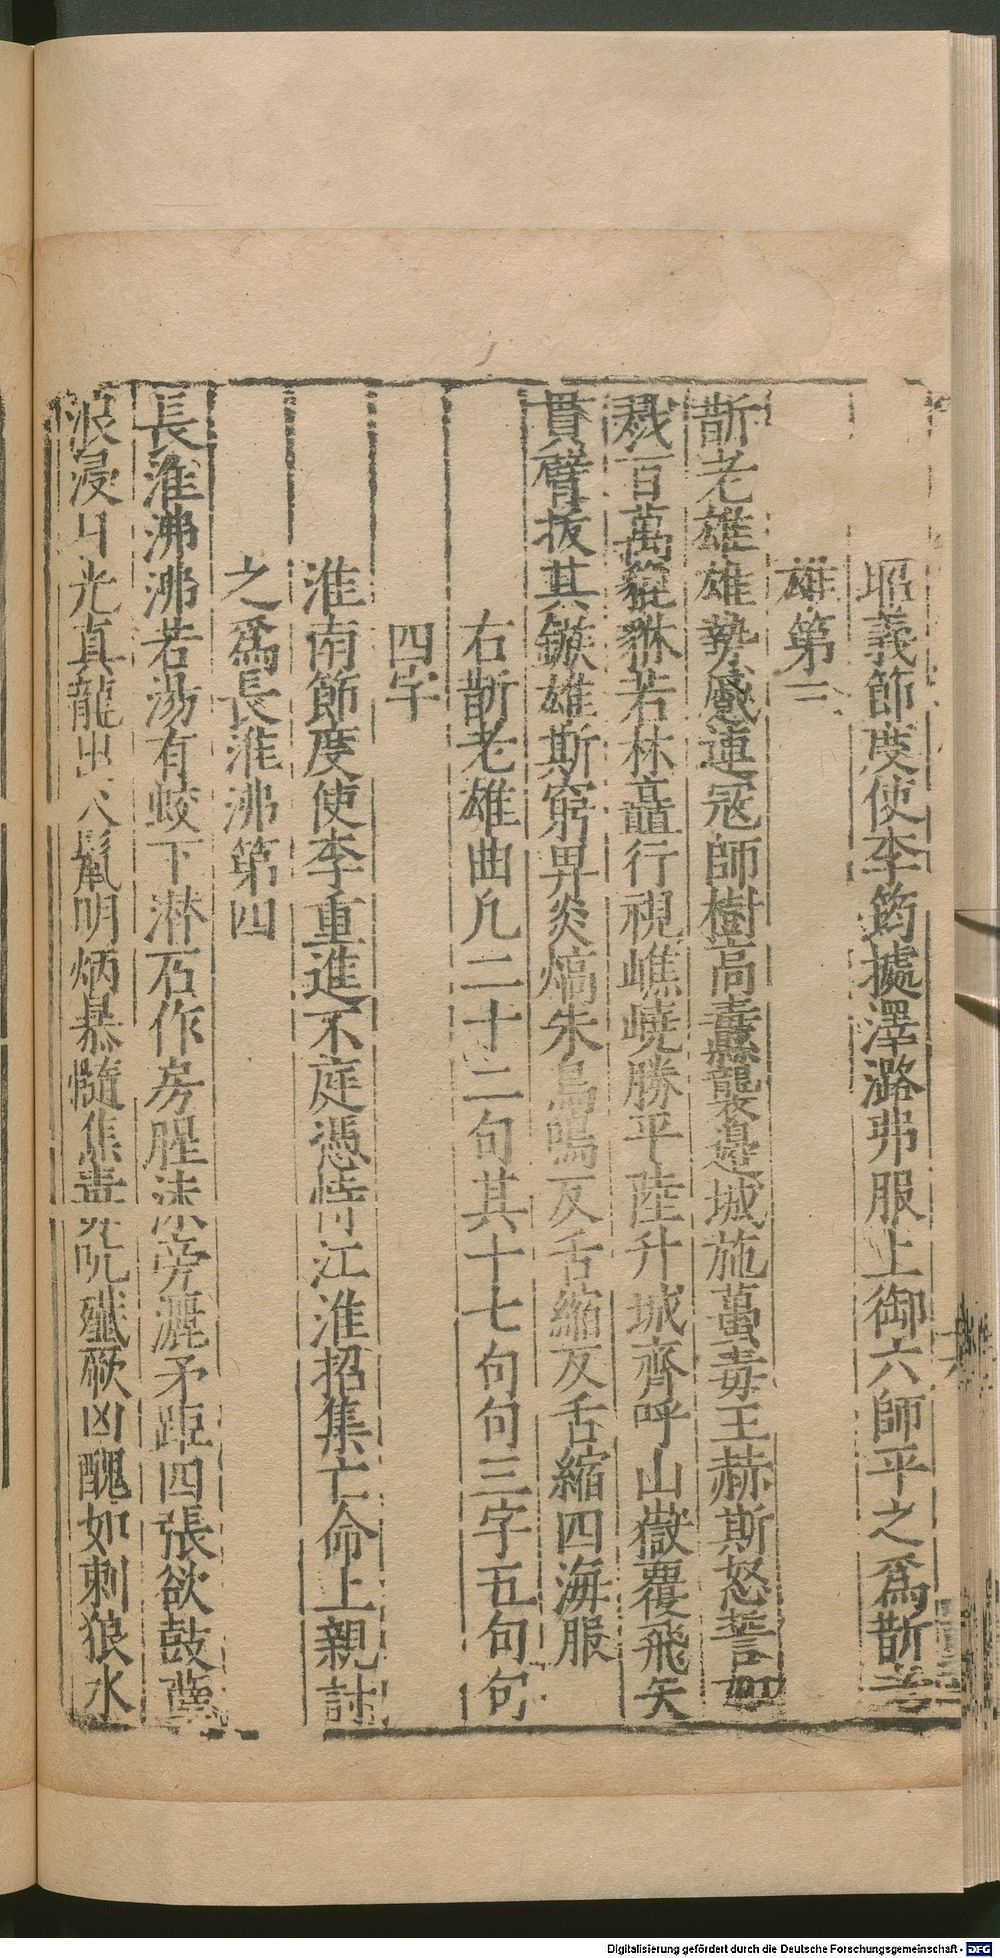 昭義節度使李筠據澤潞弗服上御六師平之爲斮老
雄第三
斮老雄雄勢蹙連寇師樹高纛襲邊城施蠆毒王赫斯怒誓如
戮百萬貔貅若林矗行視嶕嶢勝平陸升城齊呼山嶽覆飛矢
貫臂拔其鏃雄斯窮畀炎熇朱鳥鳴反舌縮反舌縮四海服
右斮老雄曲凡二十二句其十七句句三字五句句
四字
淮南節度使李重進不庭憑恃江淮招集亡命上親討
之爲長淮沸第四
長淮沸沸若湯有蛟下潛石作房腥沫旁灑矛距四張欲鼓
浪浸日光真龍出火鬣明炳暴髓焦毒殲厥凶醜如刺狼水
Digitalisierung gefördert durch die Deutsche Forschungsgemeinschaft - DFG